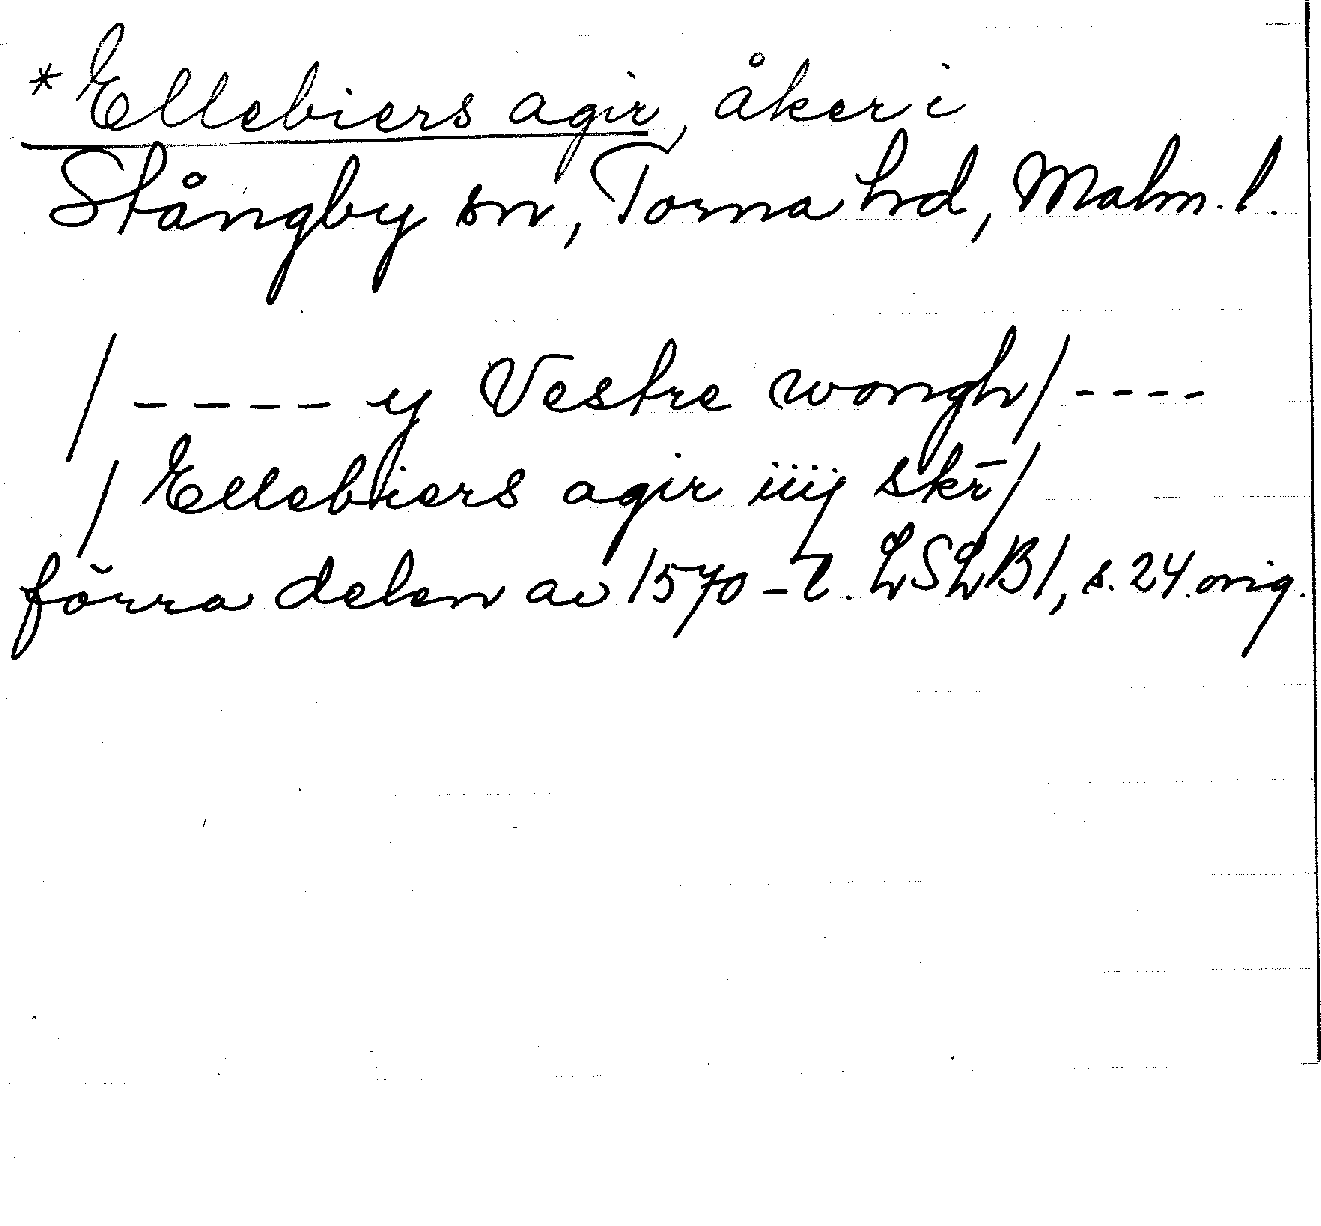 *Ellebiers agir, åker i
Stångby sn, Torna hrd, Malm. l.
/ ---- y Vestre wongh/ ----
/ Ellebiers agir iiij skr̄/
förra delen av 1570-t. LSLB1, s. 24 orig.